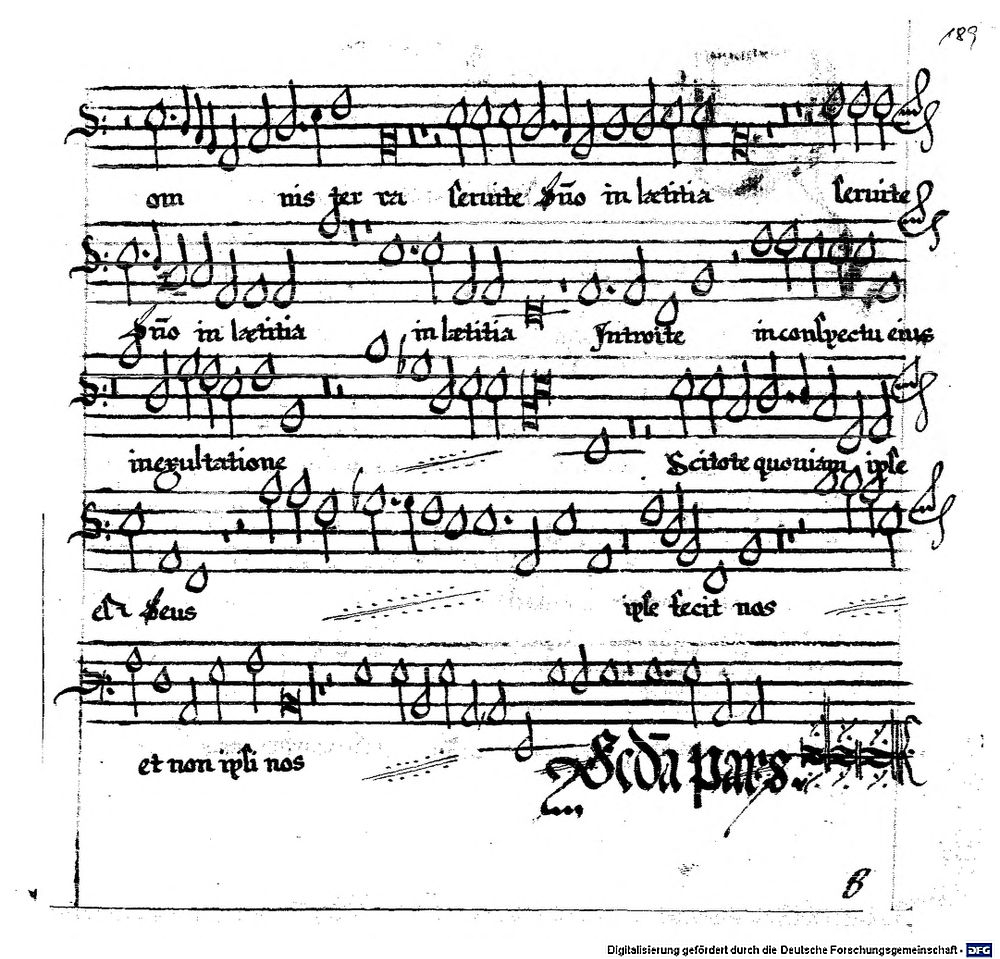 189
om nis ter ra seruite dño in lætitia seruite
dño in lætitia in lætitia Introite in conspectu eius
in exultatione Scitote quoniam ipse
est deus ipse fecit nos
et non ipsi nos
Scđa pars.
B
Digitalisierung gefördert durch die Deutsche Forschungsgemeinschaft - DFG